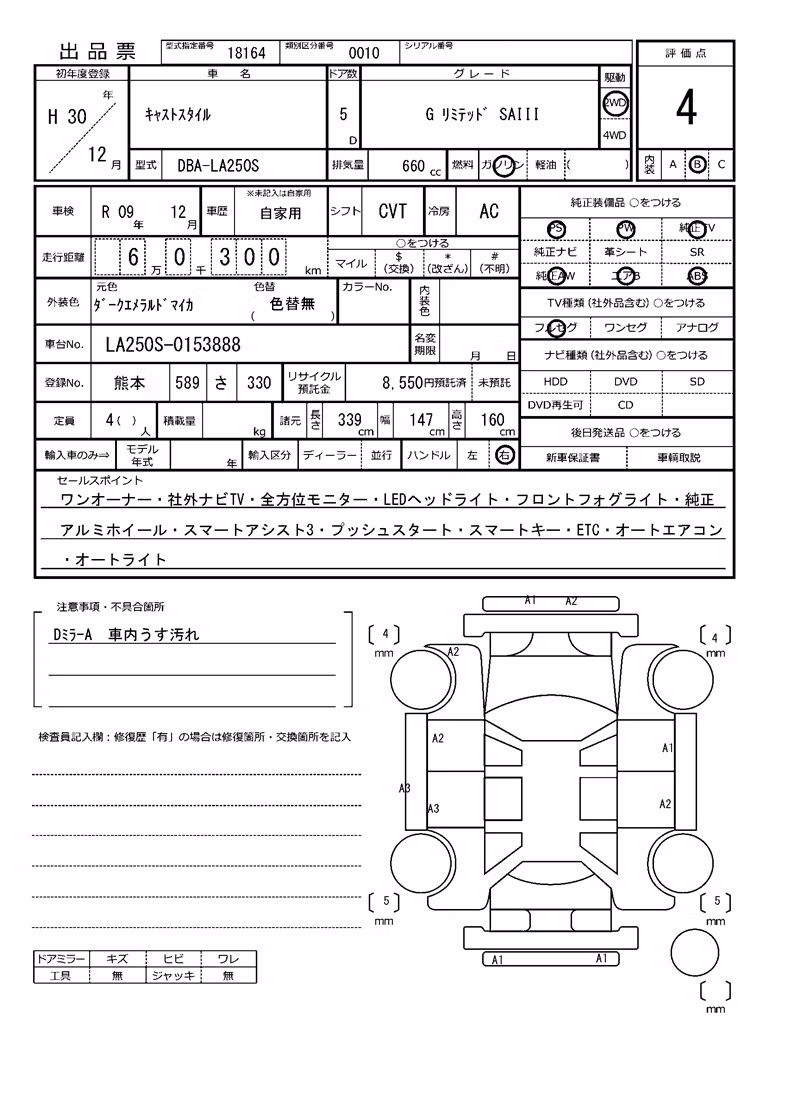 出品票 型式指定番号 18164 類別区分番号 0010 シリアル番号
評価点
4
内装 A B C
初年度登録 車名 ドア数 グレード 駆動
H 30 年 12 月 キャストスタイル 5 D G リミテッド SAIII 2WD 4WD
型式 DBA-LA250S 排気量 660 cc 燃料 ガソリン 軽油 ( )
車検 R 09 年 12 月 車歴 ※未記入は自家用 自家用 シフト CVT 冷房 AC
走行距離 6 万 0 千 3 0 0 km ○をつける
マイル $ (交換) * (改ざん) # (不明)
外装色 元色 ダークエメラルドマイカ 色替 ( 色替無 ) カラーNo. 内装色
車台No. LA250S-0153888 名変期限 月 日
登録No. 熊本 589 さ 330 リサイクル預託金 8,550円預託済 未預託
定員 4 ( ) 人 積載量 kg 諸元 長さ 339 cm 幅 147 cm 高さ 160 cm
輸入車のみ⇒ モデル年式 年 輸入区分 ディーラー 並行 ハンドル 左 右
純正装備品 ○をつける
PS PW 純正TV
純正ナビ 革シート SR
純正AW エアB ABS
TV種類 (社外品含む) ○をつける
フルセグ ワンセグ アナログ
ナビ種類 (社外品含む) ○をつける
HDD DVD SD
DVD再生可 CD
後日発送品 ○をつける
新車保証書 車輌取説
セールスポイント
ワンオーナー・社外ナビTV・全方位モニター・LEDヘッドライト・フロントフォグライト・純正
アルミホイール・スマートアシスト3・プッシュスタート・スマートキー・ETC・オートエアコン
・オートライト
注意事項・不具合箇所
DミラーA 車内うす汚れ
検査員記入欄：修復歴「有」の場合は修復箇所・交換箇所を記入
ドアミラー キズ ヒビ ワレ
工具 無 ジャッキ 無
A1 A2
4 mm
4 mm
A2
A2 A1
A3
A3 A2
5 mm
5 mm
A1 A1
mm